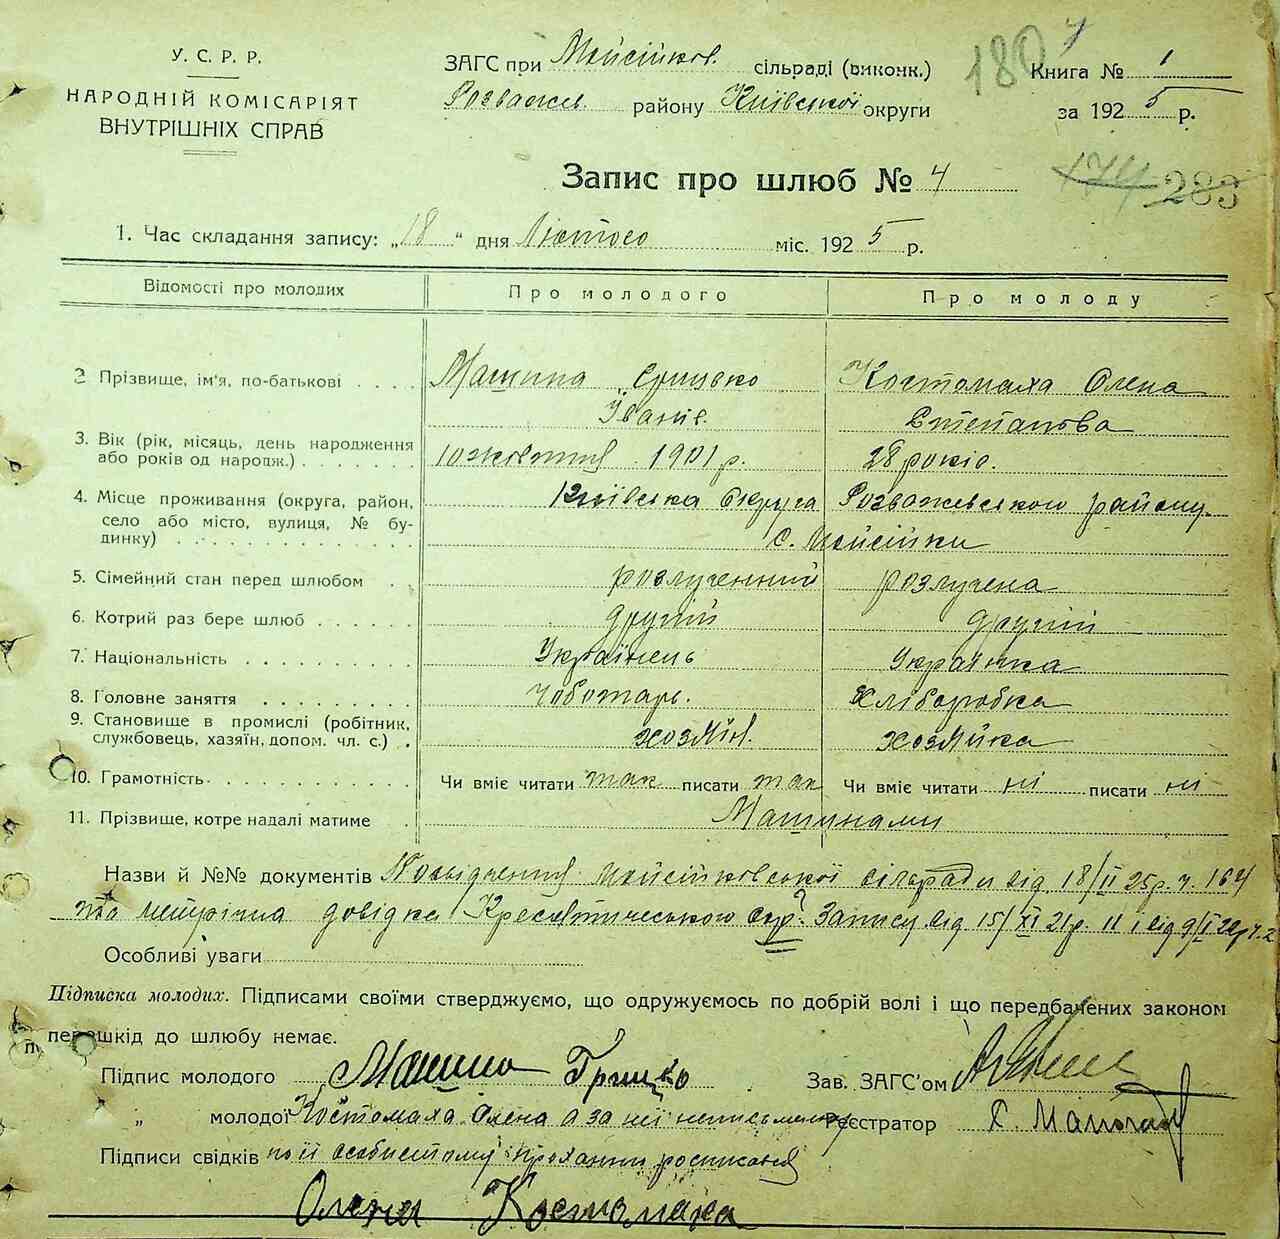 У. С. Р. Р.
НАРОДНІЙ КОМІСАРІЯТ
ВНУТРІШНІХ СПРАВ
ЗАГС при Мойсійков. сільраді (виконк.)
Розважев. району Київської округи
180
Книга № 1
за 1925 р.
Запис про шлюб № 4
174 283
1. Час складання запису: „18“ дня Лютого міс. 1925 р.
Відомості про молодих Про молодого Про молоду
2 Прізвище, ім'я, по-батькові Машина Грицько Іванів. Костомаха Олена Степанова
3. Вік (рік, місяць, день народження або років од народж.) 10 жовтня 1901 р. 28 років.
4. Місце проживання (округа, район, село або місто, вулиця, № будинку) Київська Округа Розважевського району с. Мойсійки
5. Сімейний стан перед шлюбом розлученний розлучена
6. Котрий раз бере шлюб другій другій
7. Національність Українець Українка
8. Головне заняття чоботарь. хліборобка
9. Становище в промислі (робітник, службовець, хазяїн, допом. чл. с.) хозяїн. хозяйка
10. Грамотність Чи вміє читати так писати так Чи вміє читати ні писати ні
11. Прізвище, котре надалі матиме Машинами
Назви й №№ документів Посвідчення Мойсійковської сільради від 18/II 25р. ч. 164
та метрична довідка записи від 15/XI 21р. 11 і від 9/I
Особливі уваги
Підписка молодих. Підписами своїми стверджуємо, що одружуємось по добрій волі і що передбачених законом
перешкід до шлюбу немає.
Підпис молодого Машина Грицько Зав. ЗАГС'ом
„ молодої Костомаха Олена а за неї неписьменну Реєстратор
Підписи свідків по її особистому проханню росписався
Олени Костомаха